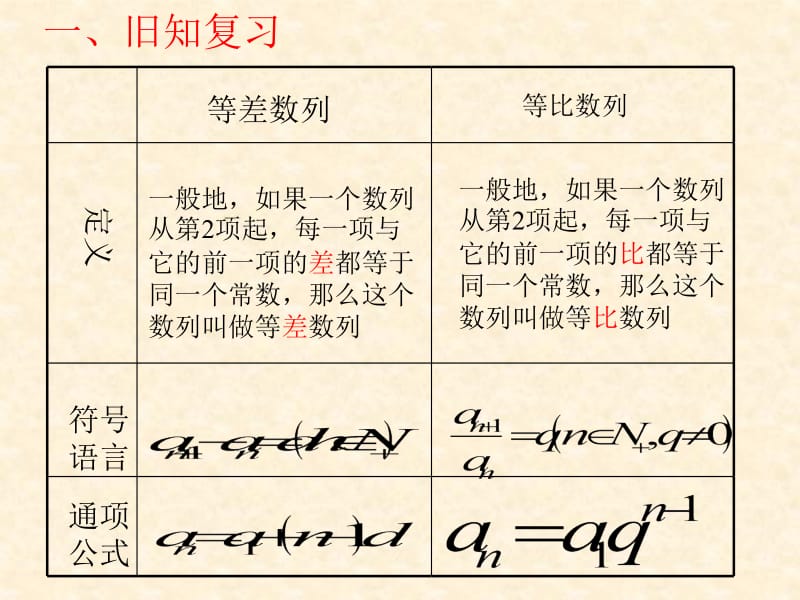 一、旧知复习
等差数列
等比数列
定义
一般地，如果一个数列
从第2项起，每一项与
它的前一项的差都等于
同一个常数，那么这个
数列叫做等差数列
一般地，如果一个数列
从第2项起，每一项与
它的前一项的比都等于
同一个常数，那么这个
数列叫做等比数列
符号
语言
a_{n+1}-a_n=d(n∈N_+)
a_{n+1}/a_n=q(n∈N_+,q≠0)
通项
公式
a_n=a_1+(n-1)d
a_n=a_1q^{n-1}